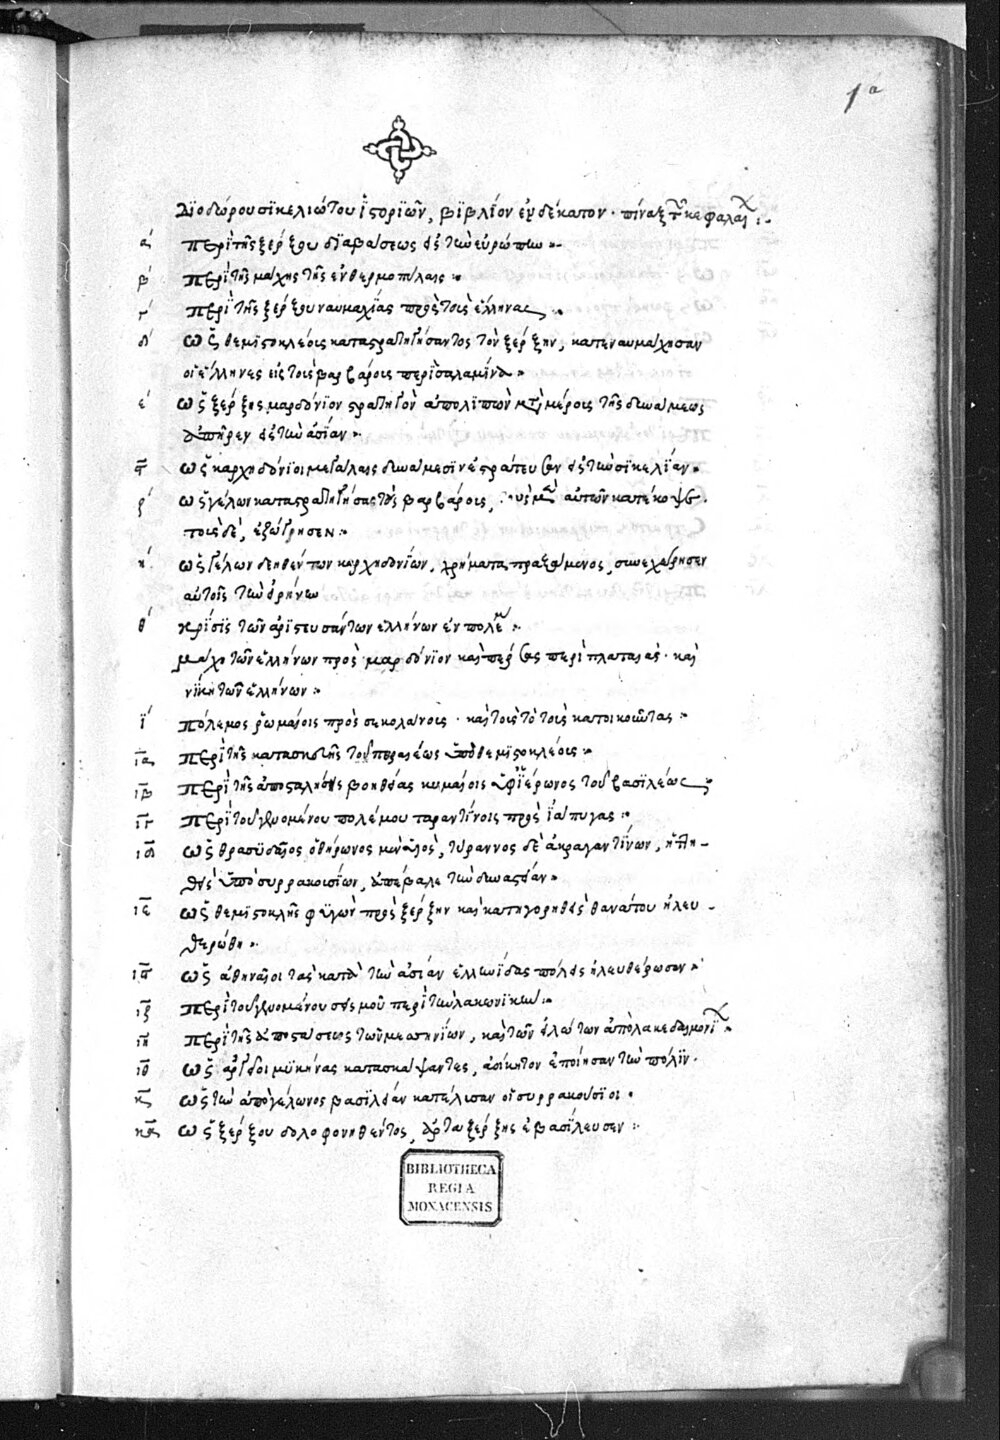 1 a
Διοδώρου σικελιώτου ἱστοριῶν, βιβλίον ἑνδέκατον · πίναξ τῶν κεφαλαί
α περὶ τῆς ξέρξου διαβάσεως εἰς τὴν εὐρώπην
β περὶ τῆς μάχης τῆς ἐν θερμοπύλαις
γ περὶ τῆς ξέρξου ναυμαχίας πρὸς τοὺς ἕλληνας
δ ὡς θεμιστοκλέους καταστρατηγήσαντος τὸν ξέρξην, κατεναυμάχησαν
οἱ ἕλληνες εἰς τοὺς βαρβάρους περὶ σαλαμῖνα
ε ὡς ξέρξης μαρδόνιον στρατηγὸν ἀπολιπὼν μετὰ μέρους τῆς δυνάμεως
ἀπῆρεν εἰς τὴν ἀσίαν
ϛ ὡς καρχηδόνιοι μεγάλαις δυνάμεσιν ἐστράτευσαν εἰς τὴν σικελίαν
ζ ὡς γέλων καταστρατηγήσας τοὺς βαρβάρους, τοὺς μὲν αὐτῶν κατέκοψε
τοὺς δὲ, ἐζώγρησεν
η ὡς γέλων δεηθέντων καρχηδονίων, χρήματα πραξάμενος, συνεχώρησεν
αὐτοῖς τὴν εἰρήνην
θ κρίσις τῶν ἀριστευσάντων ἑλλήνων ἐν πολέμ
μάχη τῶν ἑλλήνων πρὸς μαρδόνιον καὶ πέρσας περὶ πλαταιὰς · καὶ
νίκη τῶν ἑλλήνων
ι πόλεμος ῥωμαίοις πρὸς σεκολανοὺς · καὶ τοὺς τὸ τοὺς κατοικοῦντας
ια περὶ τῆς κατασκευῆς τοῦ πειραιέως ὑπὸ θεμιστοκλέους
ιβ περὶ τῆς ἀποσταλείσης βοηθείας κυμαίοις ὑφ' ἱέρωνος τοῦ βασιλέως
ιγ περὶ τοῦ γενομένου πολέμου ταραντίνοις πρὸς ἰάπυγας
ιδ ὡς θρασυδαῖος ὁ θήρωνος μὲν υἱὸς, τύραννος δὲ ἀκραγαντίνων, ἡττη-
θεὶς ὑπὸ συρρακουσίων, ἀπέβαλε τὴν δυναστείαν
ιε ὡς θεμιστοκλῆς φυγὼν πρὸς ξέρξην καὶ κατηγορηθεὶς θανάτου ἠλευ-
θερώθη
ιϛ ὡς ἀθηναῖοι τὰς κατὰ τὴν ἀσίαν ἑλληνίδας πόλεις ἠλευθέρωσαν
ιζ περὶ τοῦ γενομένου σεισμοῦ περὶ τὴν λακωνικὴν
ιη περὶ τῆς ἀποστάσεως τῶν μεσηνίων, καὶ τῶν εἱλώτων ἀπὸ λακεδαιμονί
ιθ ὡς ἀργεῖοι μυκήνας κατασκάψαντες, ἀοίκητον ἐποίησαν τὴν πόλιν
κ ὡς τὴν ἀπὸ γέλωνος βασιλείαν κατέλυσαν οἱ συρρακούσιοι
κα ὡς ξέρξου δολοφονηθέντος, ἀρταξέρξης ἐβασίλευσεν
BIBLIOTHECA
REGIA
MONACENSIS